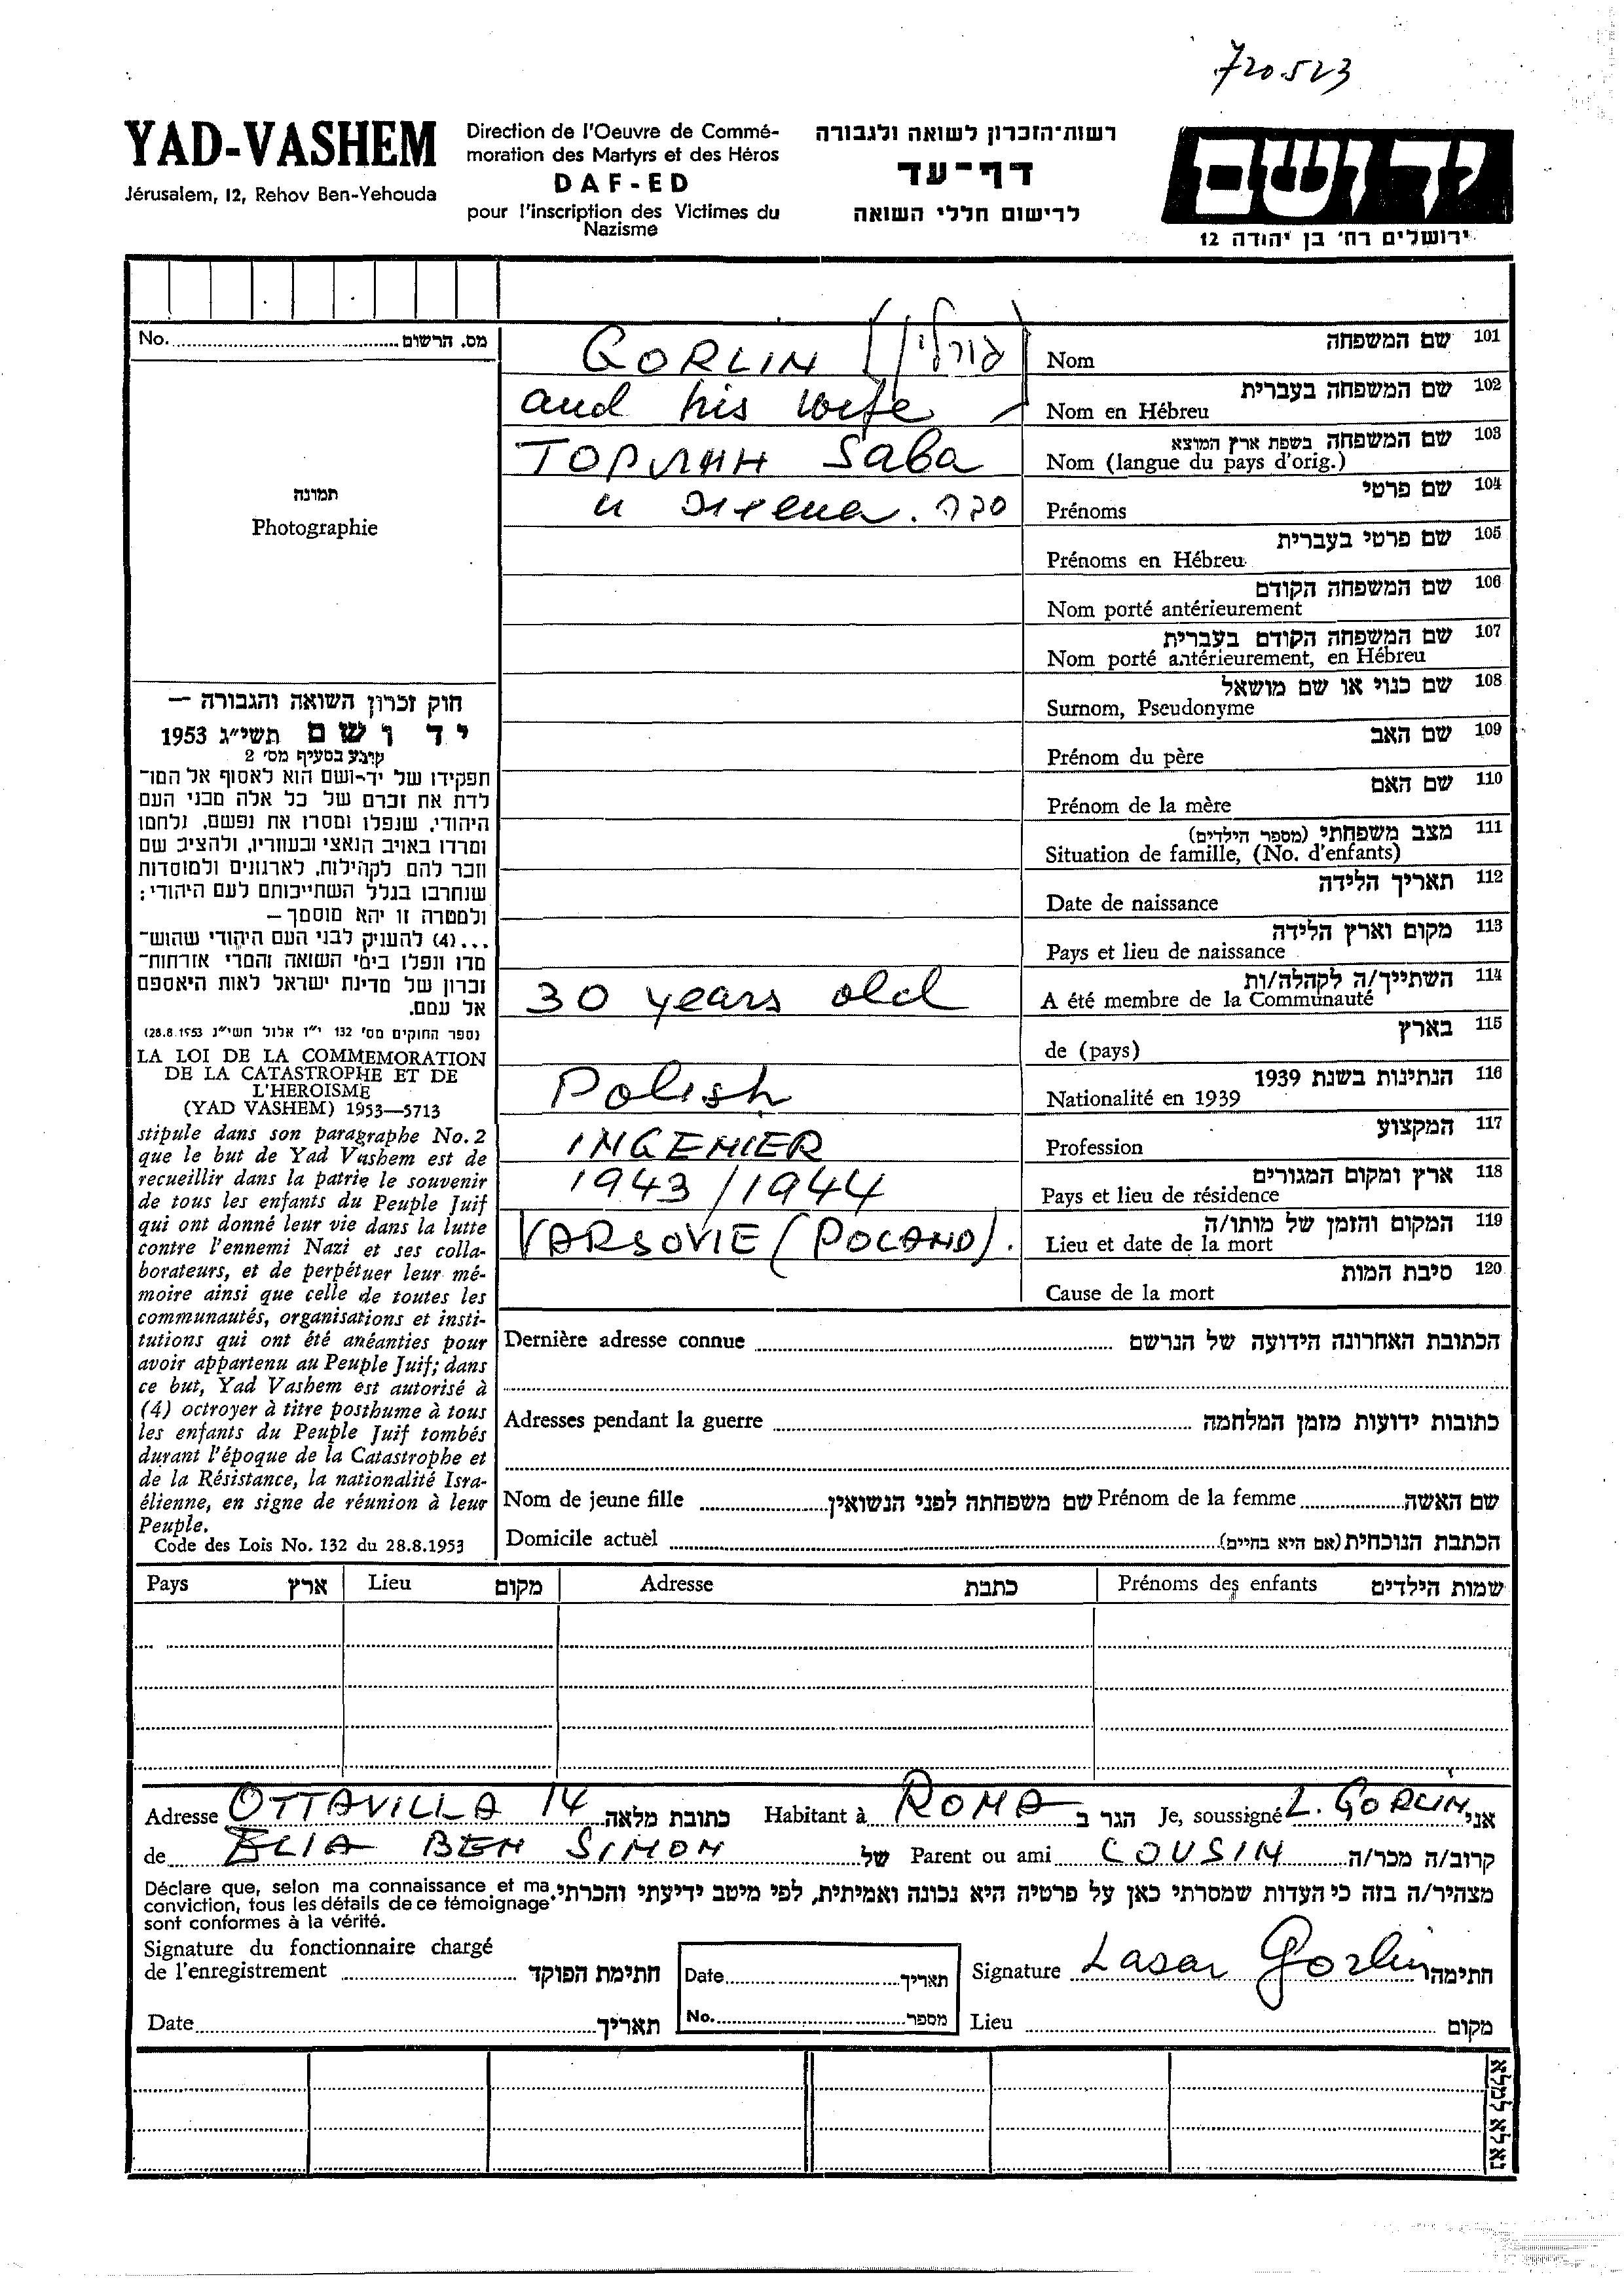 720523
YAD-VASHEM
Jérusalem, 12, Rehov Ben-Yehouda
Direction de l'Oeuvre de Commé-
moration des Martyrs et des Héros
DAF-ED
pour l'inscription des Victimes du
Nazisme
רשות־הזכרון לשואה ולגבורה
דף־עד
לרישום חללי השואה
יד ושם
ירושלים רח' בן יהודה 12
No. מס. הרשום
תמונה
Photographie
חוק זכרון השואה והגבורה —
יד ושם תשי״ג 1953
קובע בסעיף מס' 2
תפקידו של יד-ושם הוא לאסוף אל המו־
לדת את זכרם של כל אלה מבני העם
היהודי, שנפלו ומסרו את נפשם, נלחמו
ומרדו באויב הנאצי ובעוזריו, ולהציב שם
וזכר להם לקהילות, לארגונים ולמוסדות
שנחרבו בגלל השתייכותם לעם היהודי;
ולמטרה זו יהא מוסמך —
...(4) להעניק לבני העם היהודי שהוש־
מדו ונפלו בימי השואה והמרי אזרחות־
זכרון של מדינת ישראל לאות היאספם
אל עמם.
(ספר החוקים מס' 132 י״ז אלול תשי״ג 28.8.1953)
LA LOI DE LA COMMEMORATION
DE LA CATASTROPHE ET DE
L'HEROISME
(YAD VASHEM) 1953—5713
stipule dans son paragraphe No. 2
que le but de Yad Vashem est de
recueillir dans la patrie le souvenir
de tous les enfants du Peuple Juif
qui ont donné leur vie dans la lutte
contre l'ennemi Nazi et ses colla-
borateurs, et de perpétuer leur mé-
moire ainsi que celle de toutes les
communautés, organisations et insti-
tutions qui ont été anéanties pour
avoir appartenu au Peuple Juif; dans
ce but, Yad Vashem est autorisé à
(4) octroyer à titre posthume à tous
les enfants du Peuple Juif tombés
durant l'époque de la Catastrophe et
de la Résistance, la nationalité Isra-
élienne, en signe de réunion à leur
Peuple.
Code des Lois No. 132 du 28.8.1953
GORLIN (גורלין)
101 שם המשפחה
Nom
and his wife
102 שם המשפחה בעברית
Nom en Hébreu
ГОРЛИН Saba
103 שם המשפחה בשפת ארץ המוצא
Nom (langue du pays d'orig.)
104 שם פרטי
Prénoms
105 שם פרטי בעברית
Prénoms en Hébreu
106 שם המשפחה הקודם
Nom porté antérieurement
107 שם המשפחה הקודם בעברית
Nom porté antérieurement, en Hébreu
108 שם כנוי או שם מושאל
Surnom, Pseudonyme
109 שם האב
Prénom du père
110 שם האם
Prénom de la mère
111 מצב משפחתי (מספר הילדים)
Situation de famille, (No. d'enfants)
112 תאריך הלידה
Date de naissance
113 מקום וארץ הלידה
Pays et lieu de naissance
30 years old
114 השתייך/ה לקהלה/ות
A été membre de la Communauté
115 בארץ
de (pays)
Polish
116 הנתינות בשנת 1939
Nationalité en 1939
INGENIER
117 המקצוע
Profession
1943/1944
118 ארץ ומקום המגורים
Pays et lieu de résidence
VARSOVIE (POLAND).
119 המקום והזמן של מותו/ה
Lieu et date de la mort
120 סיבת המות
Cause de la mort
Dernière adresse connue הכתובת האחרונה הידועה של הנרשם
Adresses pendant la guerre כתובות ידועות מזמן המלחמה
Nom de jeune fille שם משפחתה לפני הנשואין Prénom de la femme שם האשה
Domicile actuel הכתבת הנוכחית (אם היא בחיים)
Pays ארץ Lieu מקום Adresse כתבת Prénoms des enfants שמות הילדים
Adresse OTTAVILLA 14 כתובת מלאה Habitant à ROMA הגר ב Je, soussigné L. GORLIN אני
de ELIA BEN SIMON של Parent ou ami COUSIN קרוב/ה מכר/ה
Déclare que, selon ma connaissance et ma
conviction, tous les détails de ce témoignage
sont conformes à la vérité.
מצהיר/ה בזה כי העדות שמסרתי כאן על פרטיה היא נכונה ואמיתית, לפי מיטב ידיעתי והכרתי.
Signature du fonctionnaire chargé
de l'enregistrement חתימת הפוקד
Date תאריך
No. מספר
Signature Lasar Gorlin חתימה
Date תאריך
Lieu מקום
נא לא למלא